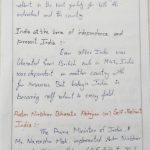 reliant in the best policy for both the
individual and the country.
India at the time of independence and
present India :-
Even after India was
liberated from British rule in 1947, India
was dependent on another country with
for resources. But today India is
becoming self reliant in every field.
Atma Nirbhar Bharata Abhiyan (or) Self-Reliant
India :-
The Prime Minister of India,
Mr. Narendra Modi implemented Atma Nirbhar